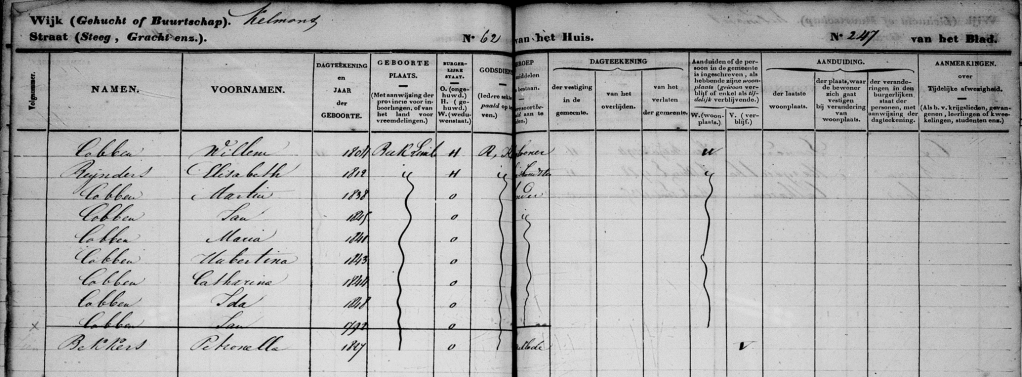 Wijk (Gehucht of Buurtschap). Kelmond
Straat (Steeg, Gracht enz.). No. 62 van het Huis. No. 247 van het Blad.
Volgnummer. NAMEN. VOORNAMEN. DAGTEEKENING en JAAR DER GEBOORTE. GEBOORTE PLAATS. (Met aanwijzing der provincie voor inboorlingen, of van het land voor vreemdelingen.) BURGERLIJKE STAAT. O. (ongehuwd.) H. (gehuwd.) W. (weduwenstaat.) GODSDIEN (Iedere
DAGTEEKENING der vestiging in de gemeente. van het overlijden. van het verlaten der gemeente.
Aanduiden of de persoon in de gemeente is ingeschreven, als hebbende zijne woonplaats (gewoon verblijf of enkel als tijdelijk verblijvende). W. (woonplaats.) V. (verblijf.)
AANDUIDING. der laatste woonplaats. der plaats, waar de bewoner zich gaat vestigen bij verandering van woonplaats. der veranderingen, in den burgerlijken staat der personen, met aanwijzing der dagteekening.
AANMERKINGEN. over Tijdelijke afwezigheid. (Als b. v. krijgslieden, gevangenen, leerlingen of kweekelingen, studenten enz.)
Cobben Willem 1804 H R, W
Reynders Elisabeth 1812 H
Cobben Martin 1838 O
Cobben Jan O
Cobben Maria O
Cobben Hubertina 1843 O
Cobben Catharina 1844 O
Cobben Ida 1848 O
x Cobben Jan O
Bekkers Petronella 1827 O V